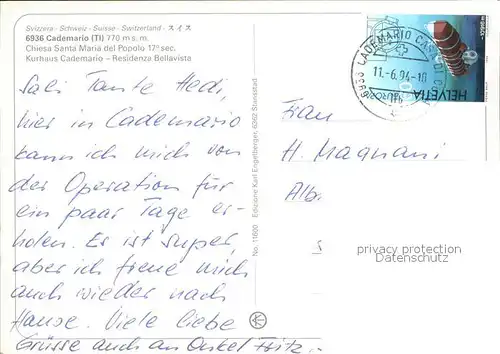 Svizzera · Schweiz · Suisse · Switzerland ·
6936 Cademario (TI) 770 m s. m.
Chiesa Santa Maria del Popolo 17º sec.
Kurhaus Cademario – Residenza Bellavista
Sali Tante Hedi,
hier in Cademario
kann ich mich von
der Operation für
ein paar Tage er-
holen. Es ist super,
aber ich freue mich
auch wieder nach
Hause. Viele liebe
Grüsse auch an Onkel Fritz,
No. 11600 Edizione Karl Engelberger, 6362 Stansstad
6936 CADEMARIO CASA DI
11.-6.94-18
HELVETIA
EUROPA
Frau
H. Magnani
Alb.
privacy protection
Datenschutz